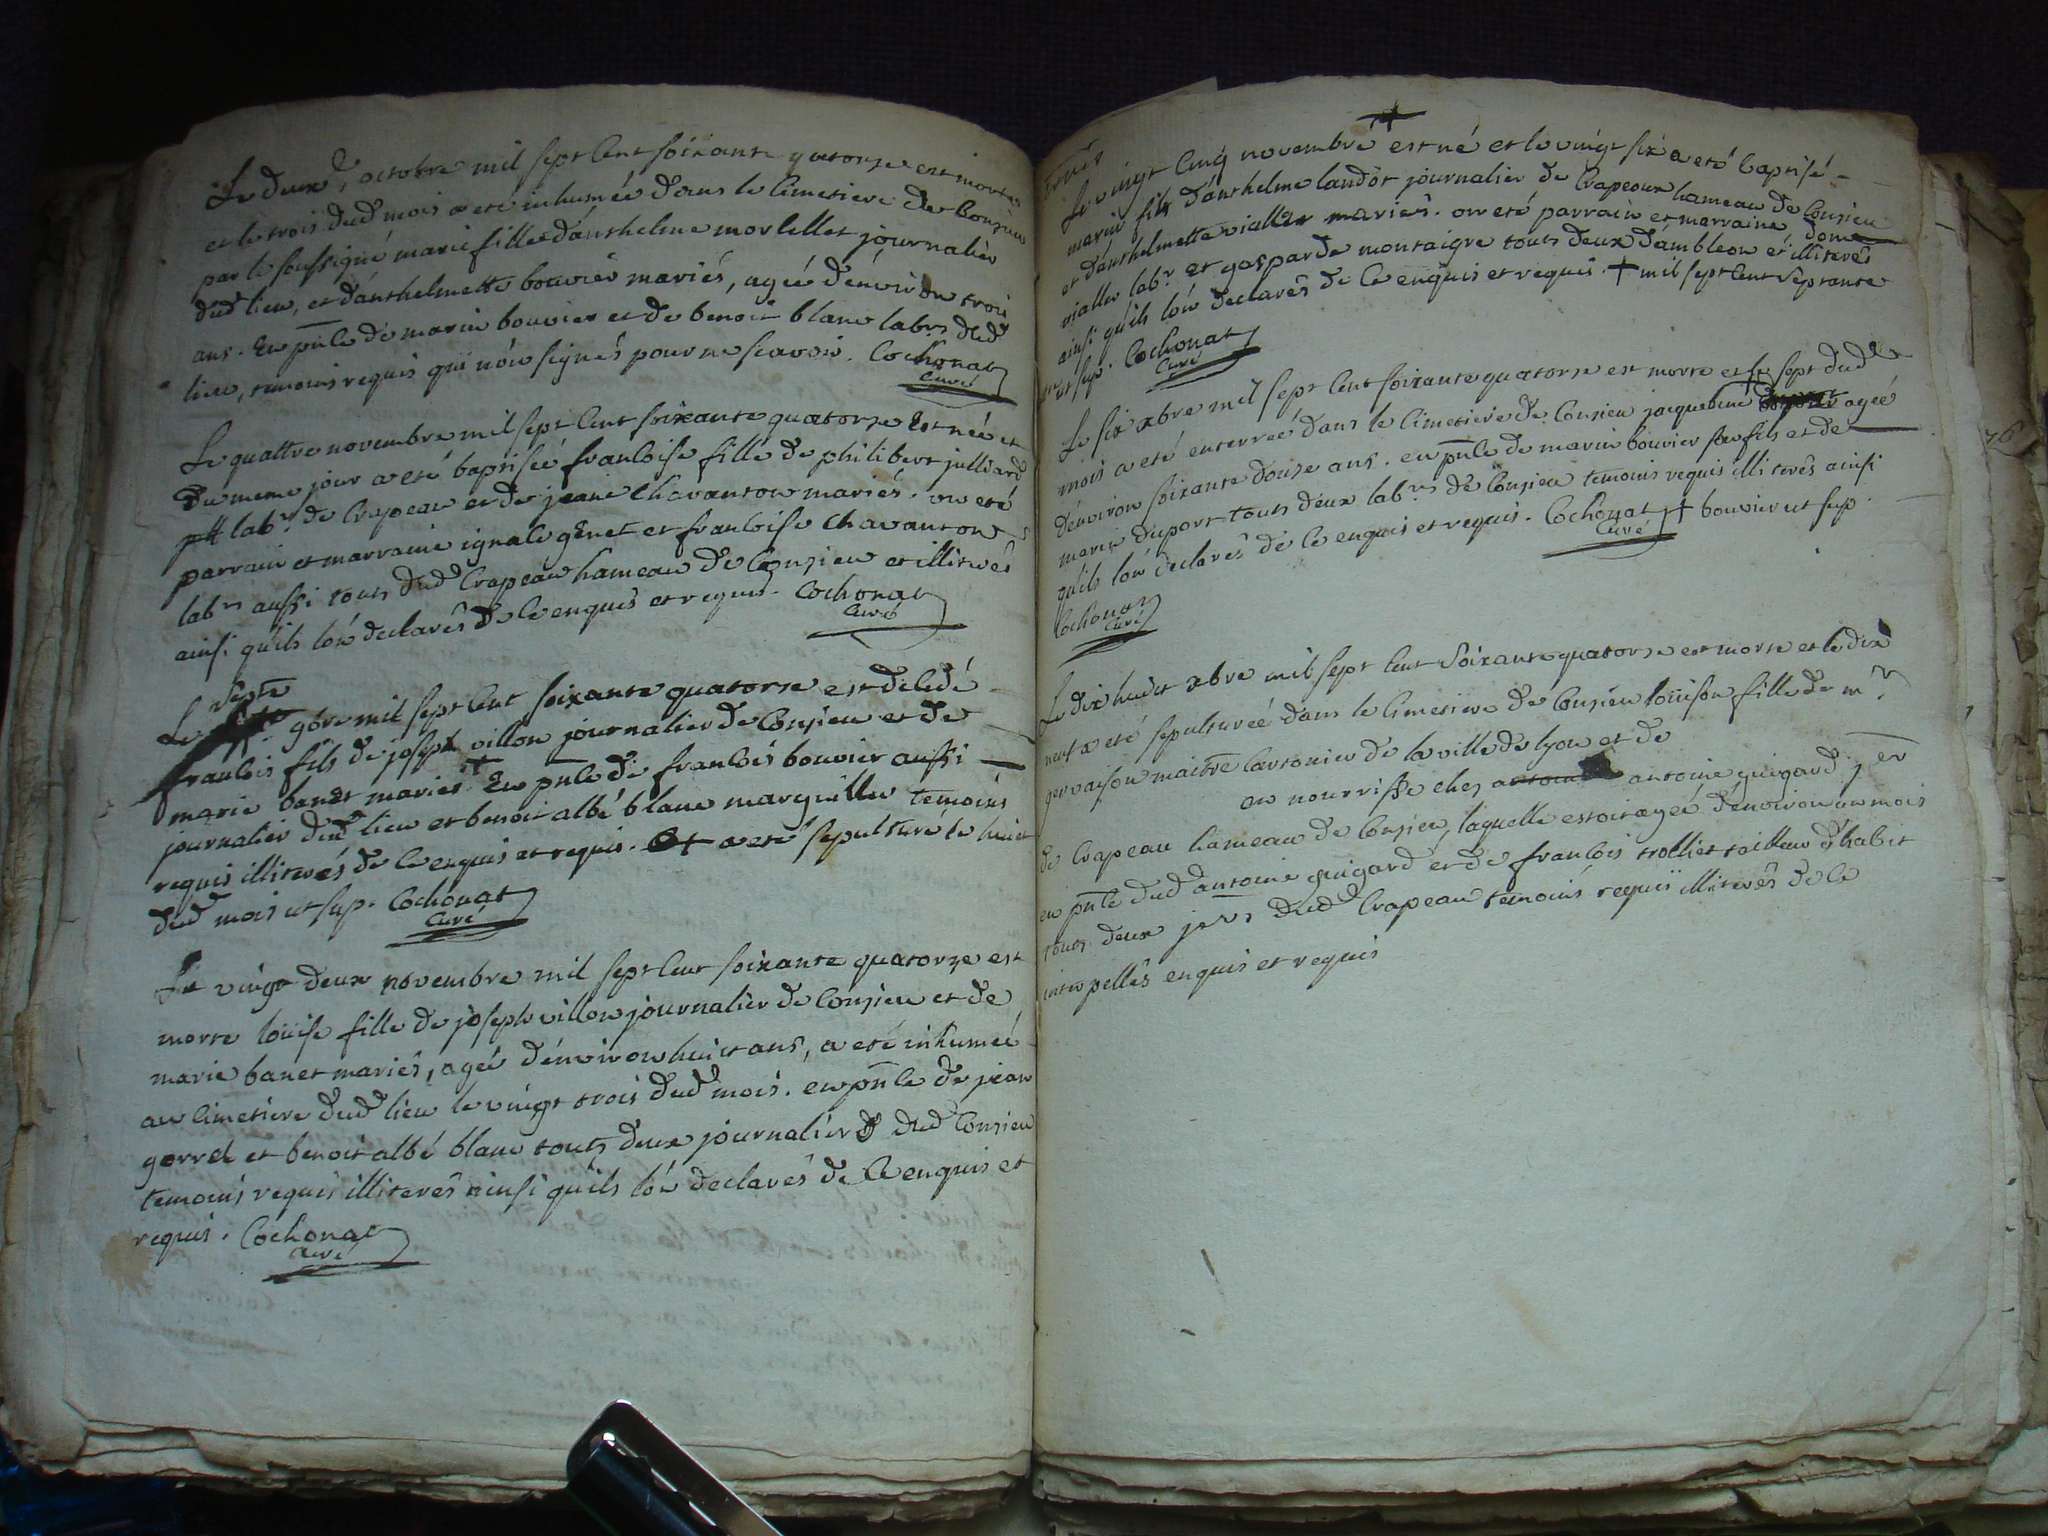 Le deux octobre mil sept cent soixante quatorse est morte
et le trois dud mois a eté inhumée dans le cimetiere de Consieu
par le soussigné marie fille dánthelme morlellet journalier
dud lieu, et dánthelmette bouvier mariés, agée dénviron trois
ans. En pnce de marin bouvier et de benoit blanc labrs dud
lieu, temoins requis qui nón signés pour ne scavoir. Cochonat
Curé
Le quattre novembre mil sept cent soixante quatorse Est née et
du meme jour a eté baptisée francoise fille de philibert julliard
labr de Crapeau et de jeane Chavanton mariés. on eté
parrain et marraine ignace genet et francoise Chavanton
labrs aussi touts dud Crapeau hameau de Consieu et illiterés
ainsi quils lón declarés de ce enquis et requis. Cochonat
Curé
septe
Le 9bre mil sept cent soixante quatorse est decedé
francois fils de joseph villon journalier de Consieu et de
marie banet mariés + En pnce de francois bouvier aussi
journalier dud lieu et benoit albé blanc marguillier temoins
requis illiterés de ce enquis et requis. + a eté sepulturé le huict
dud mois ut sup. Cochonat
Curé
Le vingt deux novembre mil sept cent soixante quatorze est
morte loüise fille de joseph villon journalier de Consieu et de
marie banet mariés, agée dénviron huict ans, a eté inhumée
au cimetiere dud lieu le vingt trois dud mois. en pnce de jean
gorrel et benoit albé blanc touts deux journaliers dud Consieu
temoins requis illiterés ainsi quils lón declarés de ce enquis et
requis. Cochonat
Curé
+
Le vingt cinq novembre est né et le vingt six a eté baptisé
marin fils dánthelme landót journalier de Crapeoux hameau de Consieu
et dánthelmette viallier mariés. on eté parrain et marraine
viallier labr et gasparde montaigre touts deux dámbleon et illiterés
ainsi quils lón declarés de ce enquis et requis. + mil sept cent septante
ut sup. Cochonat
Curé
Le six xbre mil sept cent soixante quatorse est morte et le sept dud
mois a eté enterrée dans le cimetiere de Consieu jacquemine agée
dénviron soixante douse ans. en pnce de marin bouvier son fils et de
marin duport touts deux labrs de Consieu temoins requis illiterés ainsi
quils lón declarés de ce enquis et requis. Cochonat + bouvier ut sup.
Curé
Cochonat
Curé
Le dix huict xbre mil sept cent soixante quatorse est morte et le dix
neuf a eté sepulturéé dans le cimetiere de Consieu loüison fille de mr
gervaison maitre cartonier de la ville de lyon et de
en nourrisse chez antoine guigard
de Crapeau hameau de Consieu, laquelle estoit agée dénviron un mois
en pnce dud antoine guigard et de francois trolliet tailleur dhabit
touts deux dud Crapeau temoins requis illiterés de ce
interpellés enquis et requis
76